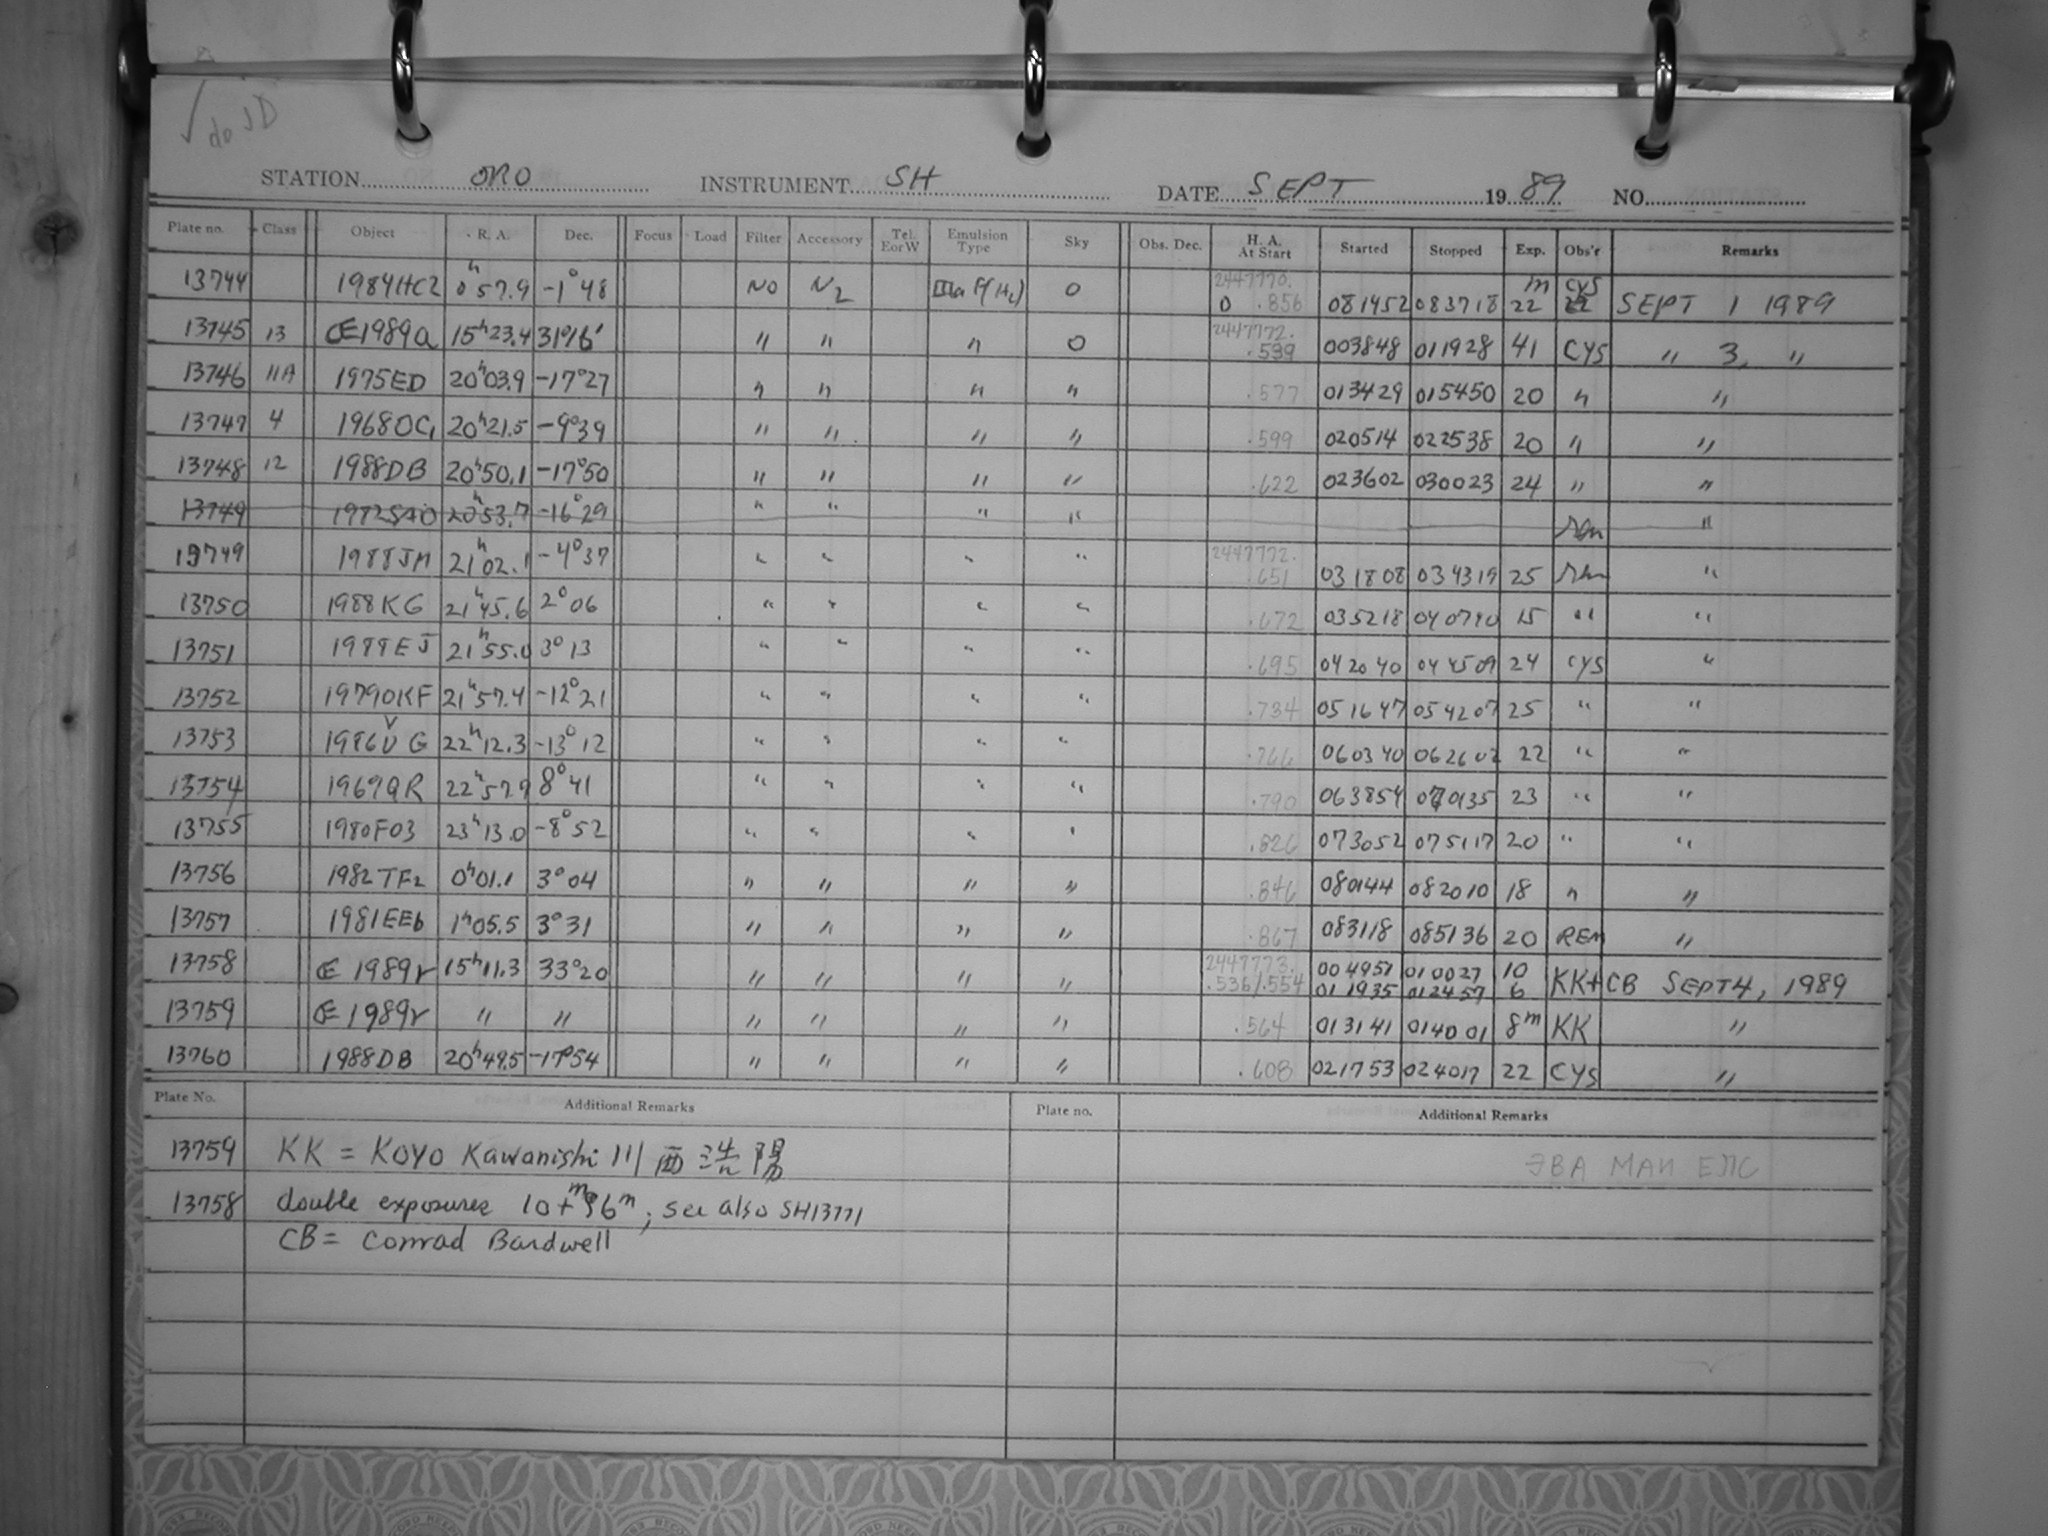 √ do JD
STATION ORO INSTRUMENT SH DATE SEPT 19 89 NO.
Plate no. Class Object R. A. Dec. Focus Load Filter Accessory Tel. E or W Emulsion Type Sky Obs. Dec. H. A. At Start Started Stopped Exp. Obs'r Remarks
13744 1984HC2 0h57.9 -1°48 NO N2 IIIaF(H2) 0 2447770. 0 .856 081452 083718 m 22 CYS SEPT 1 1989
13745 13 Œ1989a 15h23.4 31°16' " " " 0 2447772. .539 003848 011928 41 CYS " 3, "
13746 11A 1975ED 20h03.9 -17°27 " " " " .577 013429 015450 20 " "
13747 4 1968OC1 20h21.5 -9°39 " " " " .599 020514 022538 20 " "
13748 12 1988DB 20h50.1 -17°50 " " " " .622 023602 030023 24 " "
13749 20h53.7 -16°29 " " " " "
13749 1988JM 21h02.1 -4°37 " " " " 2447772. .651 031808 034319 25 "
13750 1988KG 21h45.6 2°06 " " " " .672 035218 040740 15 " "
13751 1988EJ 21h55.0 3°13 " " " " .695 042040 044509 24 CYS "
13752 1979OKF 21h57.4 -12°21 " " " " .734 051647 054207 25 " "
13753 1986VG 22h12.3 -13°12 " " " " .766 060340 062602 22 " "
13754 1969QR 22h57.9 8°41 " " " " .790 063854 070135 23 " "
13755 1980FO3 23h13.0 -8°52 " " " ' .826 073052 075117 20 " "
13756 1982TF2 0h01.1 3°04 " " " " .846 080144 082010 18 " "
13757 1981EE6 1h05.5 3°31 " " " " .867 083118 085136 20 REM "
13758 Œ 1989r 15h11.3 33°20 " " " " 2447773. .536/.554 004951 010027 10 KK+CB SEPT 4, 1989
011935 012457 6
13759 Œ 1989r " " " " " " .564 013141 014001 8m KK "
13760 1988DB 20h49.5 -17°54 " " " " .608 021753 024017 22 CYS "
Plate No. Additional Remarks Plate no. Additional Remarks
13759 KK = KOYO Kawanishi 川西浩陽
ЭВА МАН ЕПС
13758 double exposures 10m+6m; see also SH13771
CB = Conrad Bardwell